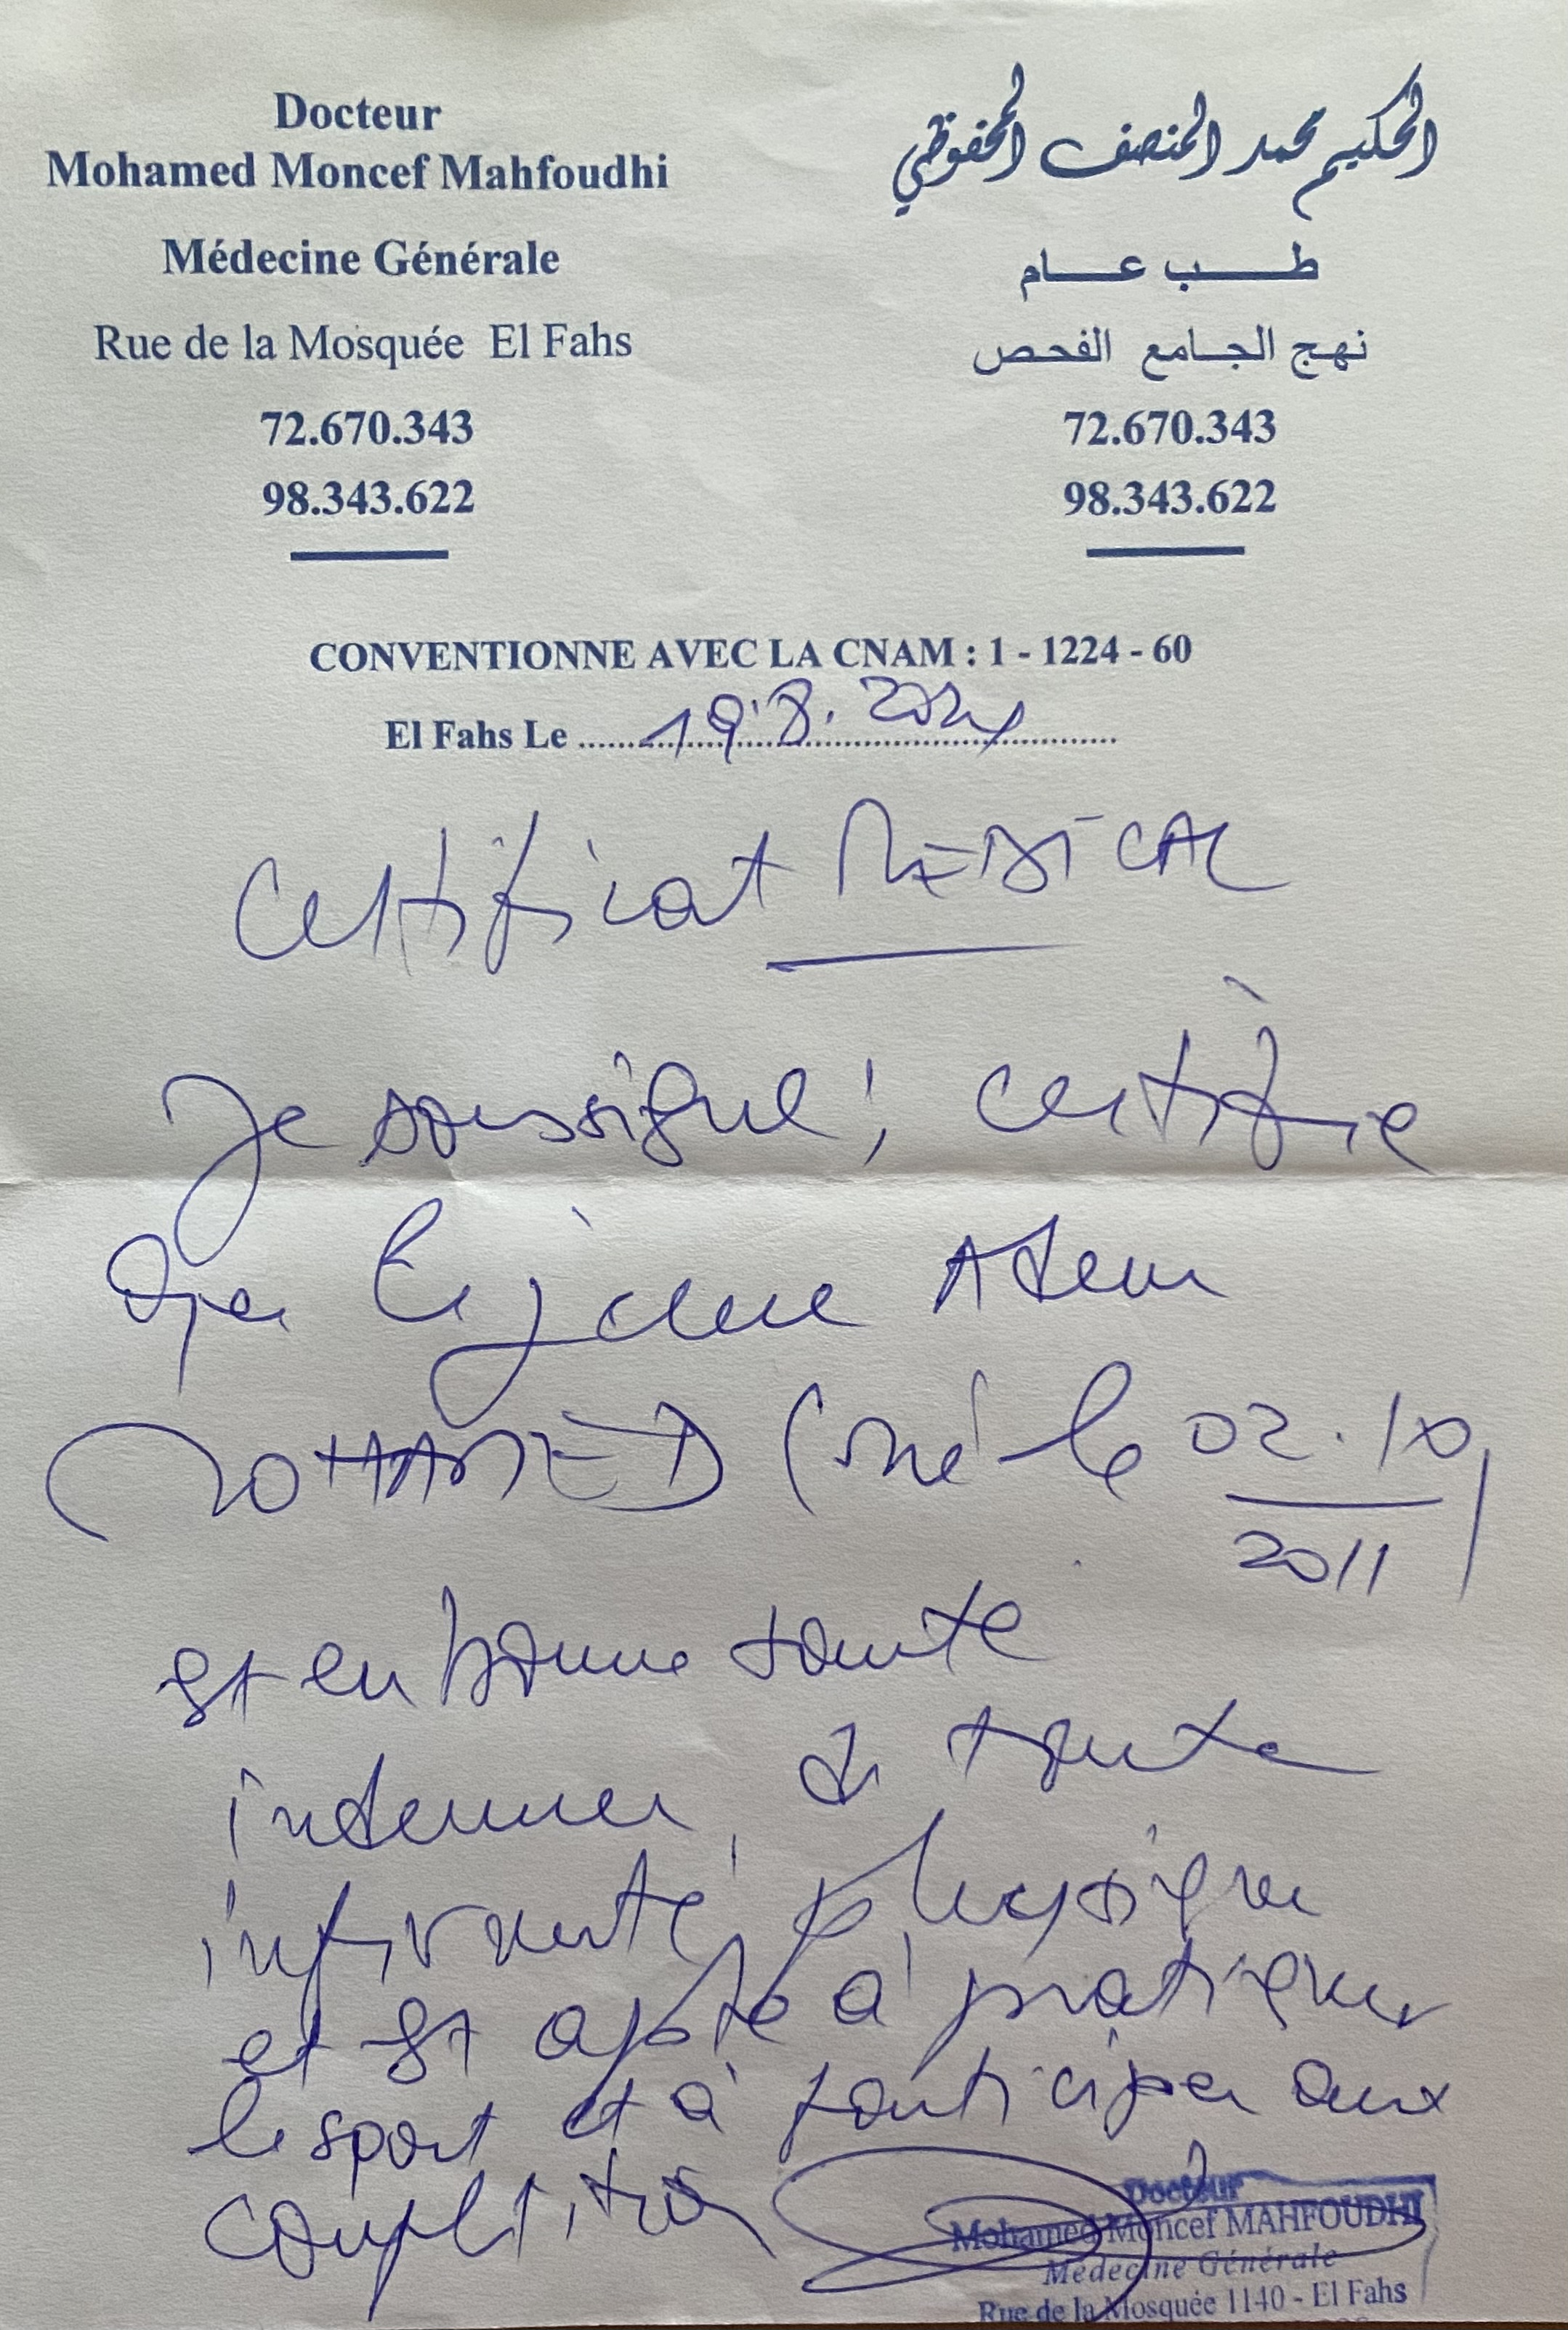 Docteur
Mohamed Moncef Mahfoudhi
Médecine Générale
Rue de la Mosquée El Fahs
72.670.343
98.343.622
الحكيم محمد المنصف المحفوظي
طب عام
نهج الجامع الفحص
72.670.343
98.343.622
CONVENTIONNE AVEC LA CNAM : 1 - 1224 - 60
El Fahs Le 19.8.2024
Certificat MEDICAL
Je soussigné, certifie
que le jeune Adem
MOHAMED (né le 02.10
2011)
est en bonne santé
indemne de toute
infirmité physique
et est apte à pratiquer
le sport et à participer aux
compétitions
Docteur
Mohamed Moncef MAHFOUDHI
Médecine Générale
Rue de la Mosquée 1140 - El Fahs